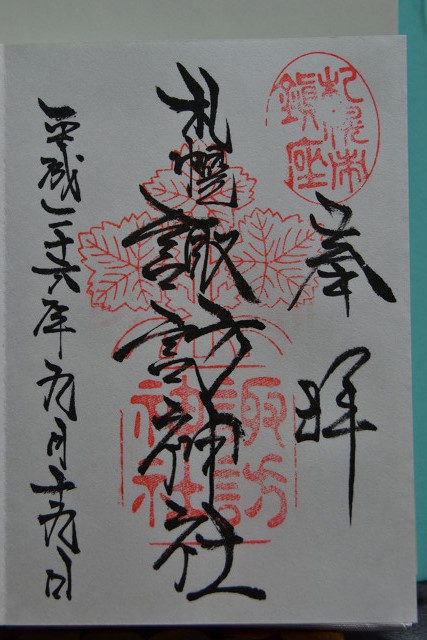 札幌市
鎮座
奉拝
札幌諏訪神社
諏訪
神社
平成二十六年五月十五日